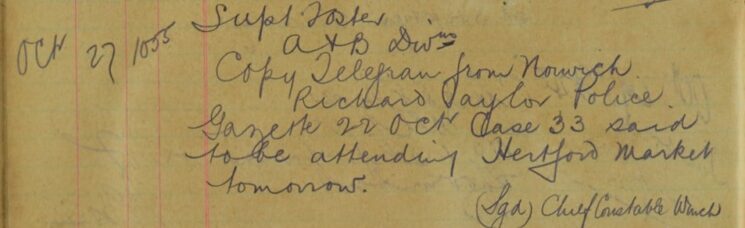 Supt Foster
Oct 27 1055 A & B Divns
Copy Telegram from Norwich.
Richard Taylor Police.
Gazette 22 Oct Case 33 said
to be attending Hertford Market
tomorrow.
(Sgd) Chief Constable Winch